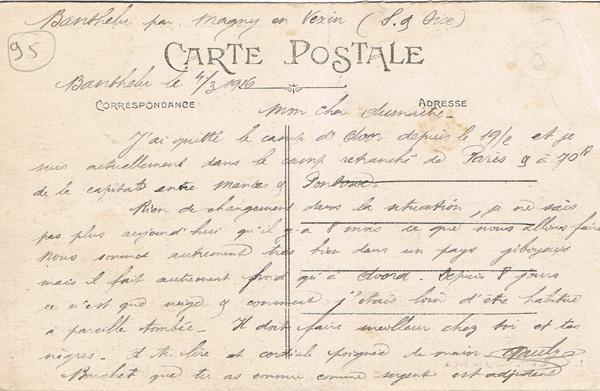 Banthelu par Magny en Vexin (S. & Oise)
95
CARTE POSTALE
Banthelu le 4/3 1916
CORRESPONDANCE
ADRESSE
Mon cher
J'ai quitté le camp d' depuis le 19/2 et je
suis actuellement dans le camp retranché de Paris &
de la capitale entre Mantes & Pontoise.
Rien de changement dans la situation, je ne sais
pas plus aujourd'hui qu'il y a 8 mois ce que nous allons faire
Nous sommes autrement très bien dans un pays giboyeux
mais il fait autrement froid qu'à Depuis 8 jours
ce n'est que neige & comment j'étais loin d'être habitué
à pareille tombée - Il doit faire meilleur chez toi et tes
nègres. et cordiale poignée de main -
Buchet que tu as connu comme sergent est adjudant